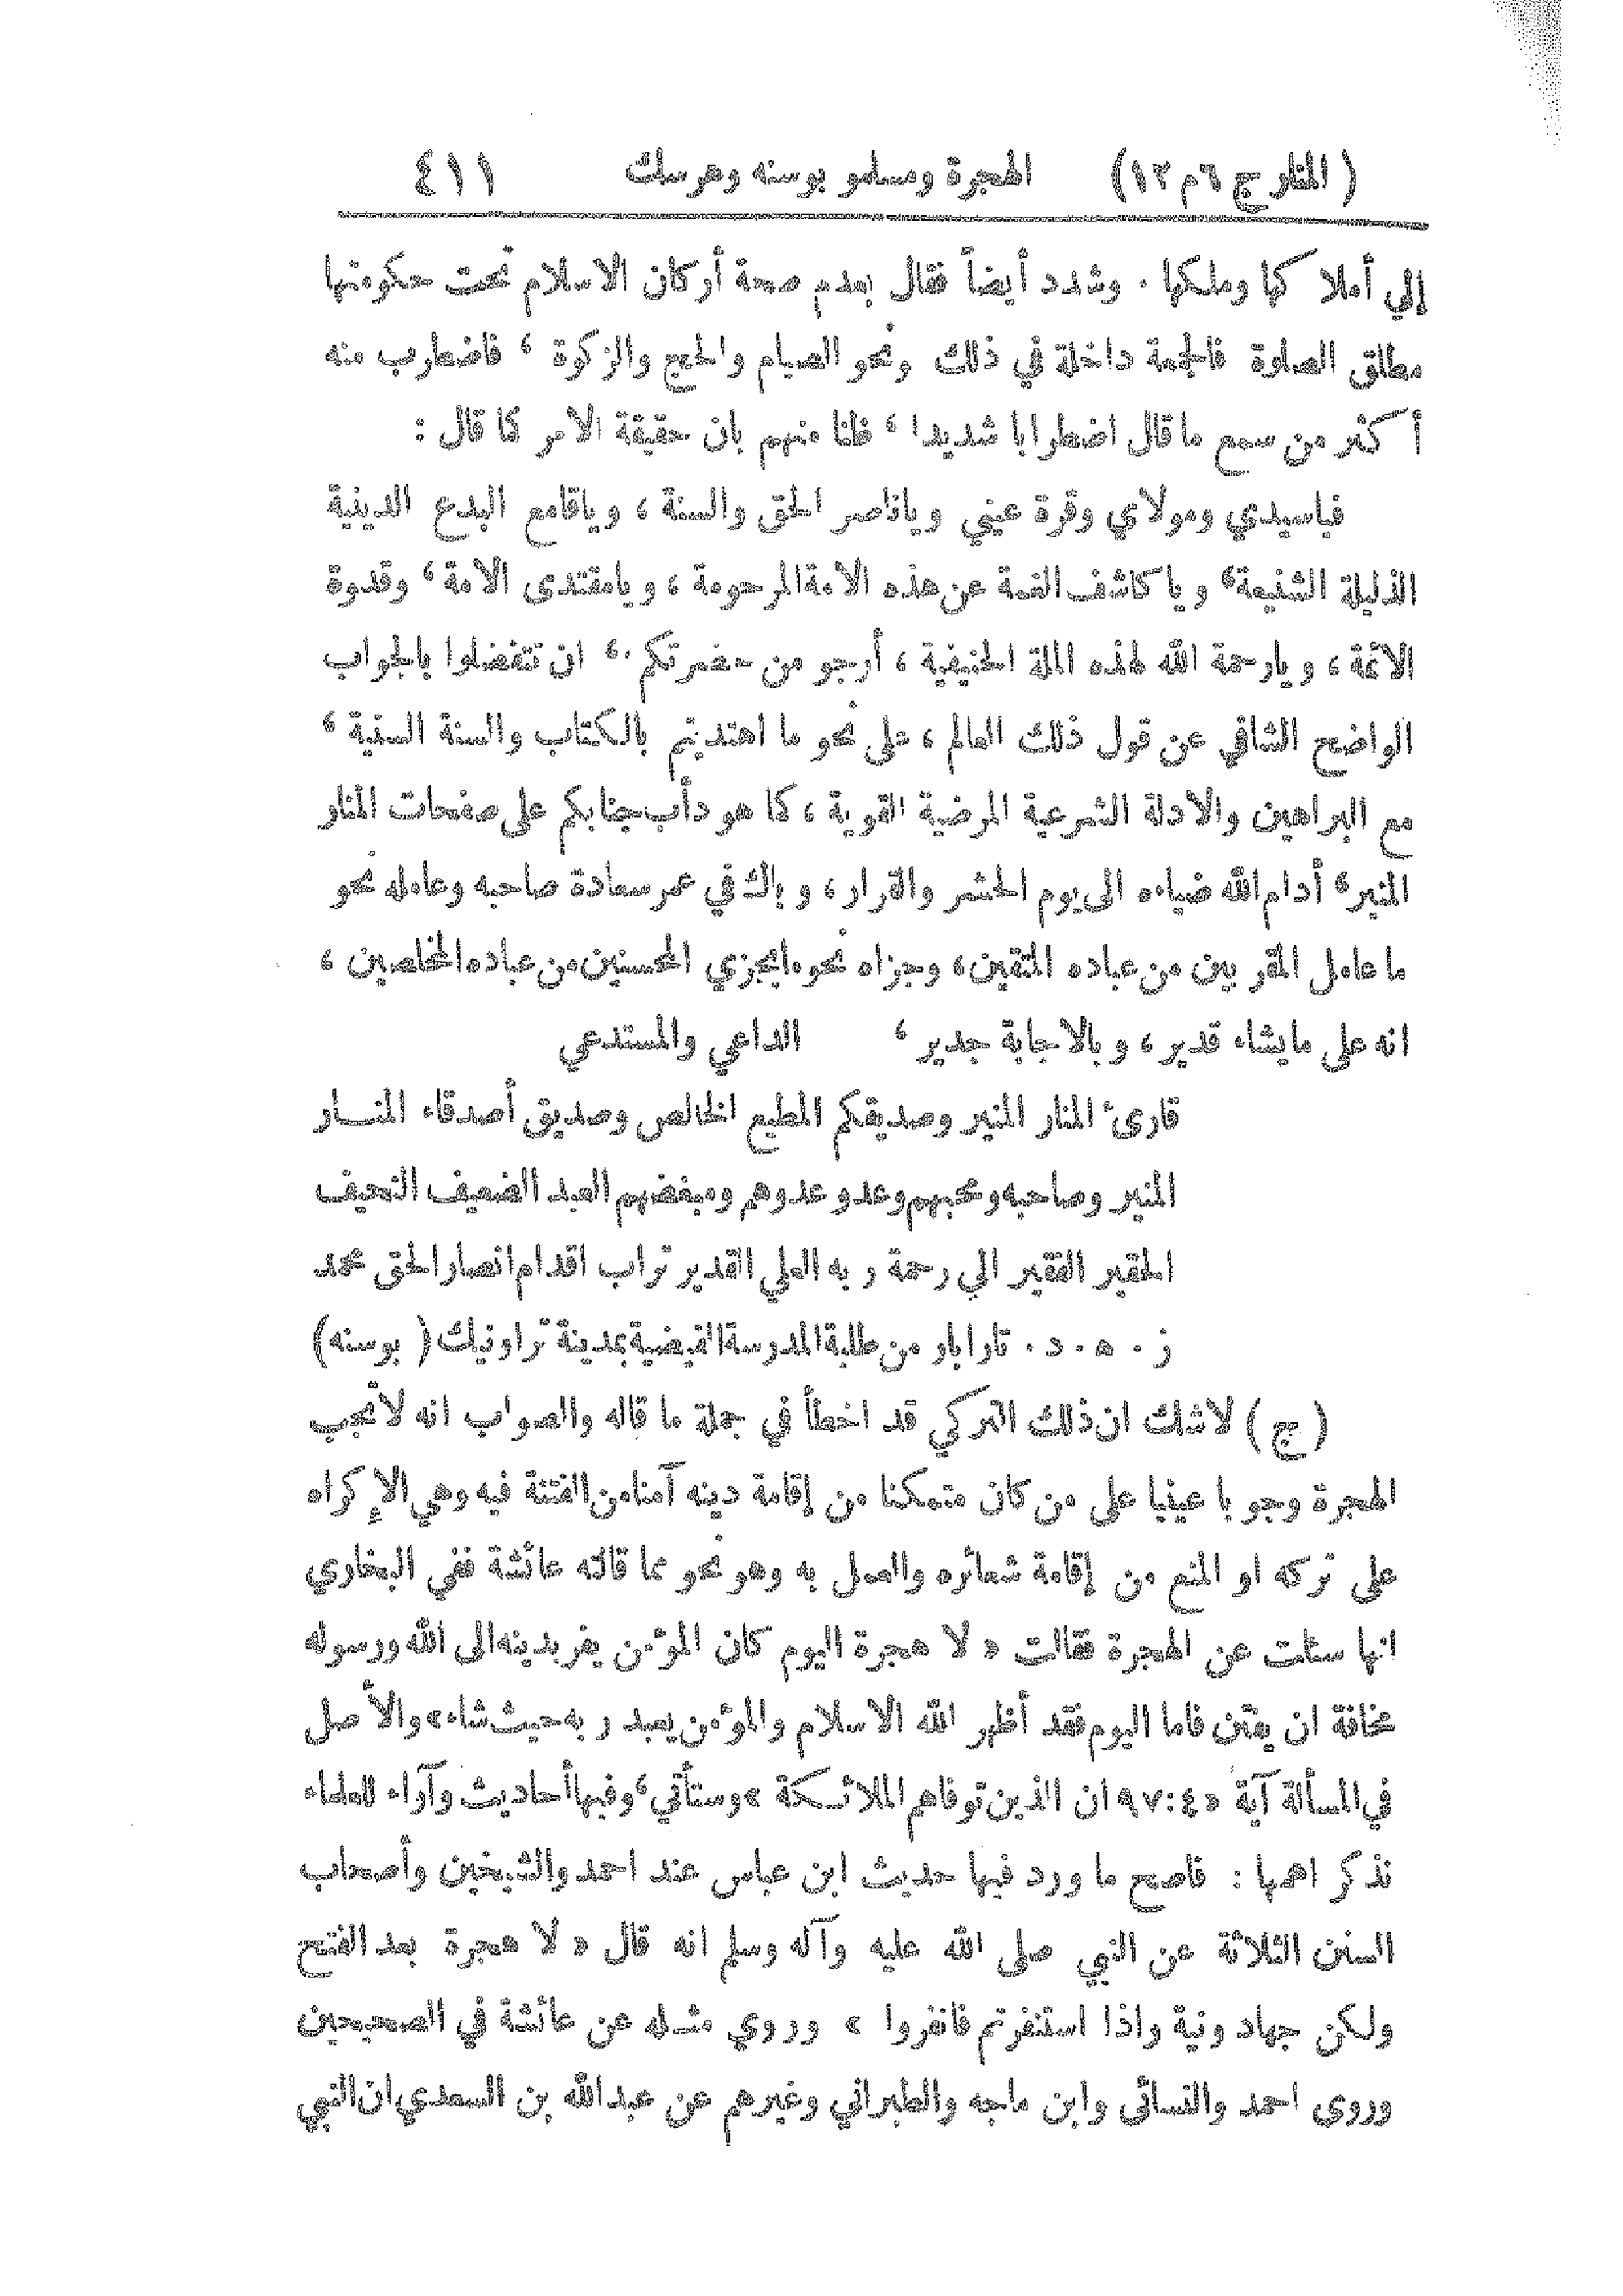 ( المنار ج ٦ م ١٢ ) الهجرة ومسلمو بوسنه وهرسك ٤١١
إلي أملاكها وملكها . وشدد أيضاً فقال بعدم صحة أركان الاسلام تحت حكومتها
مطلق الصلوة فالجمعة داخلة في ذلك ونحو الصيام والحج والزكوة ، فاضطرب منه
أكثر من سمع ما قال اضطرابا شديدا ، ظنا منهم بان حقيقة الامر كما قال :
فياسيدي ومولاي وقرة عيني وياناصر الحق والسنة ، وياقامع البدع الدينية
الذليلة الشنيعة ، وياكاشف الغمة عن هذه الامة المرحومة ، ويامقتدى الامة ، وقدوة
الائمة ، ويارحمة الله لهذه الملة الحنيفية ، أرجو من حضرتكم ، ان تتفضلوا بالجواب
الواضح الشافي عن قول ذلك العالم ، على نحو ما اهتديتم بالكتاب والسنة السنية ،
مع البراهين والادلة الشرعية المرضية القوية ، كما هو دأب جنابكم على صفحات المنار
المنير ، أدام الله ضياءه الى يوم الحشر والقرار ، وبارك في عمر سعادة صاحبه وعامله نحو
ما عامل المقربين من عباده المتقين ، وجزاه نحو مايجزي المحسنين من عباده المخلصين ،
انه على مايشاء قدير ، وبالاجابة جدير ، الداعي والمستدعي
قارئ المنار المنير وصديقكم المطيع الخالص وصديق أصدقاء المنار
المنير وصاحبه ومحبهم وعدو عدوهم ومبغضهم العبد الضعيف النحيف
الحقير الفقير الي رحمة ربه العلي القدير تراب اقدام انصار الحق محمد
ز . ه . د . تارابار من طلبة المدرسة الفيضية بمدينة تراونيك ( بوسنه )
( ج ) لاشك ان ذلك التركي قد اخطأ في جملة ما قاله والصواب انه لاتجب
الهجرة وجوبا عينيا على من كان متمكنا من إقامة دينه آمنا من الفتنة فيه وهي الإكراه
على تركه او المنع من إقامة شعائره والعمل به وهو نحو مما قالته عائشة ففي البخاري
انها سئلت عن الهجرة فقالت « لا هجرة اليوم كان المؤمن يفر بدينه الى الله ورسوله
مخافة ان يفتن فاما اليوم فقد أظهر الله الاسلام والمؤمن يعبد ربه حيث شاء » والأصل
في المسألة آية « ٤ : ٩٧ ان الذين توفاهم الملائكة » وستأتي ، وفيها أحاديث وآراء للعلماء
نذكر اهمها : فاصح ما ورد فيها حديث ابن عباس عند احمد والشيخين وأصحاب
السنن الثلاثة عن النبي صلى الله عليه وآله وسلم انه قال « لا هجرة بعد الفتح
ولكن جهاد ونية واذا استنفرتم فانفروا » وروي مثله عن عائشة في الصحيحين
وروى احمد والنسائى وابن ماجه والطبراني وغيرهم عن عبد الله بن السعدي ان النبي